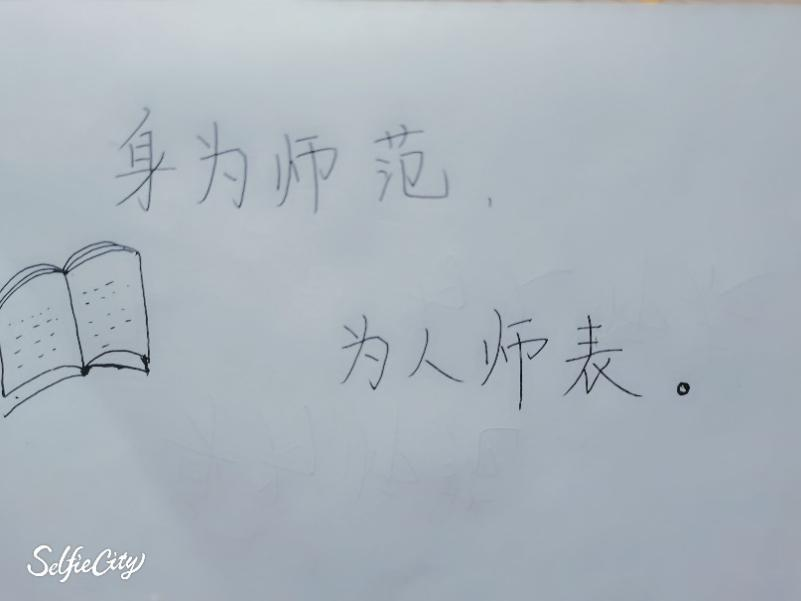 身为师范，
为人师表。
SelfieCity